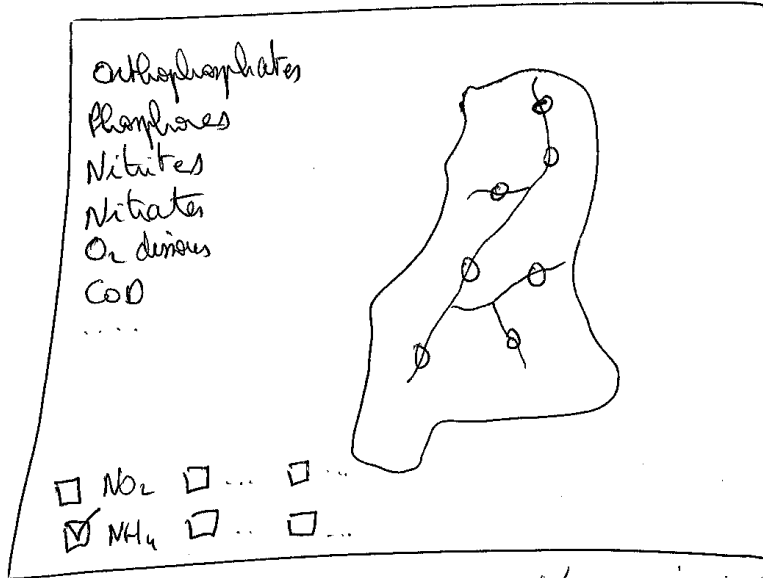 Orthophosphates
Phosphores
Nitrites
Nitrates
O2 dissous
COD
....
NO2 ... ...
NH4 .. ...